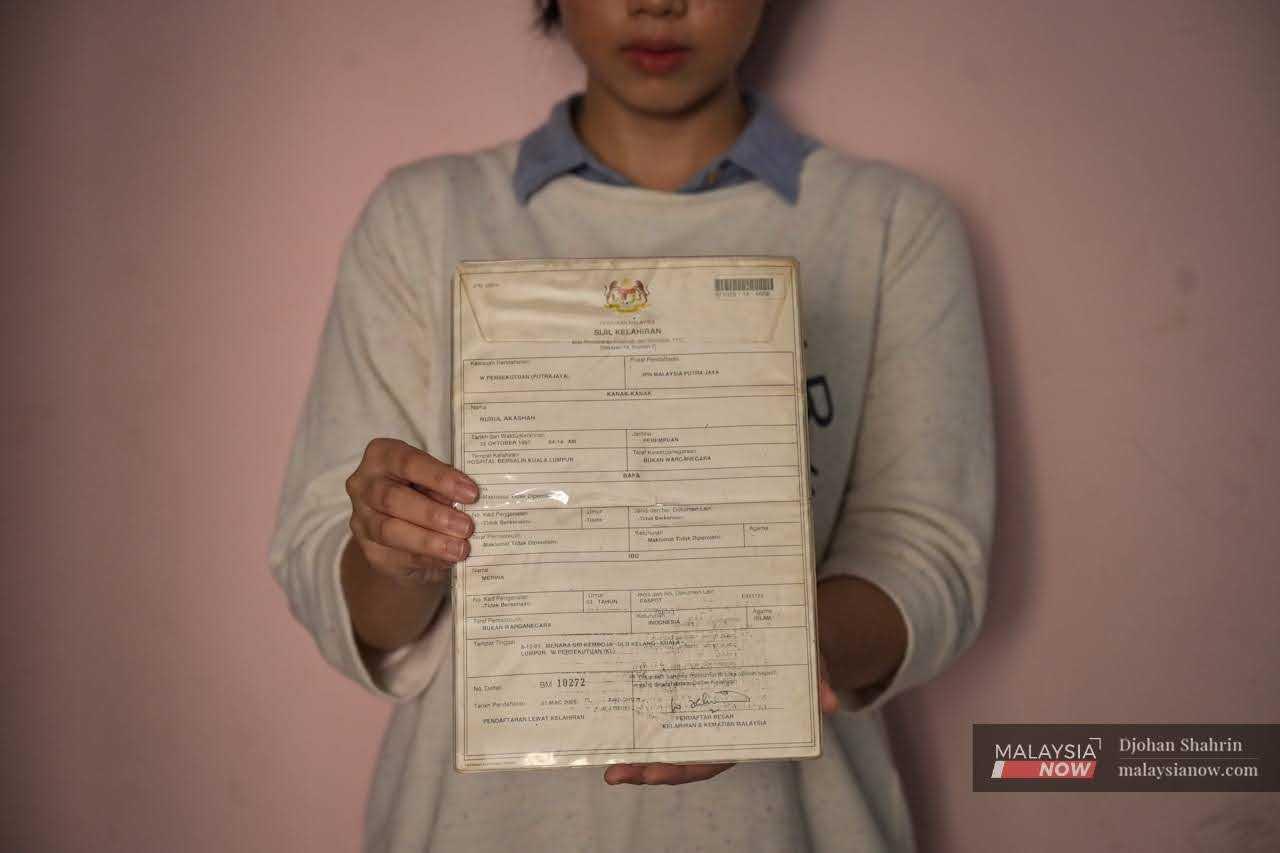 KERAJAAN MALAYSIA
SIJIL KELAHIRAN
Kawasan Pendaftaran
W.PERSEKUTUAN (PUTRAJAYA)
Pusat Pendaftaran
JPN MALAYSIA PUTRAJAYA
KANAK-KANAK
Nama
NURUL AKASHAH
Tarikh dan Waktu Kelahiran
OKTOBER
04:14 AM
Jantina
PEREMPUAN
Tempat Kelahiran
HOSPITAL BERSALIN KUALA LUMPUR
Taraf Kewarganegaraan
BUKAN WARGANEGARA
BAPA
Maklumat Tidak Diperolehi
No. Kad Pengenalan
-Tidak Berkenaan-
Umur
-Tiada-
Jenis dan No. Dokumen Lain
-Tidak Berkenaan-
Taraf Pemastautin
Maklumat Tidak Diperolehi
Keturunan
Maklumat Tidak Diperolehi
Agama
IBU
Nama
No. Kad Pengenalan
-Tidak Berkenaan-
Umur
TAHUN
Jenis dan No. Dokumen Lain
PASPOT
Taraf Pemastautin
BUKAN WARGANEGARA
Keturunan
INDONESIA
Agama
ISLAM
Tempat Tinggal
MENARA SRI KEMBOJA
LUMPUR, W.PERSEKUTUAN(KL)
No. Daftar
BM 10272
Tarikh Pendaftaran
MAC
PENDAFTARAN LEWAT KELAHIRAN
PENDAFTAR BESAR
KELAHIRAN & KEMATIAN MALAYSIA
P
MALAYSIA
NOW
Djohan Shahrin
malaysianow.com